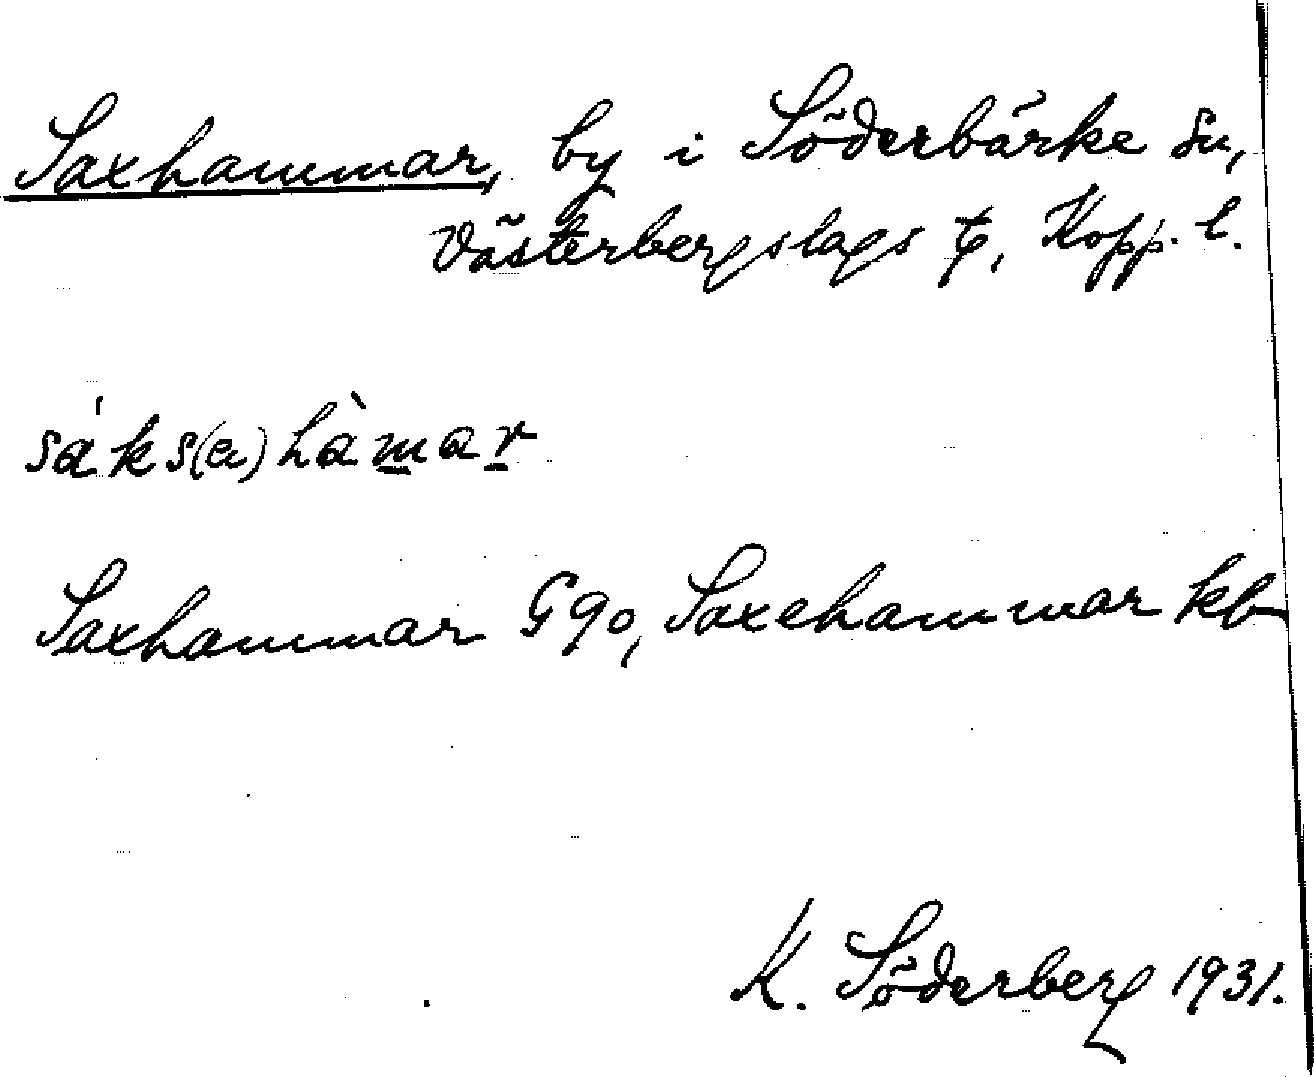 Saxhammar, by i Söderbärke sn,
Västerbergslags tg, Kopp. l.
sáks(a)hàmar
Saxhammar G90, Saxehammar kb
K. Söderberg 1931.